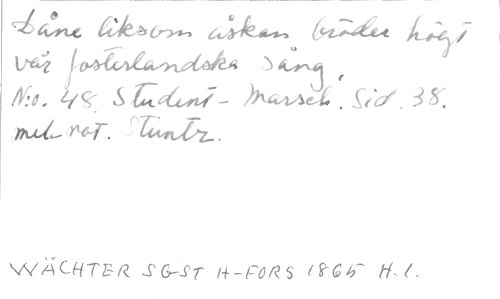 Dåne liksom åskan bröder högt
vår fosterlandska sång,
N:o. 48. Student-Marsch. Sid. 38.
mel. not. Stuntz.
WÄCHTER SGST H-FORS 1865 H.1.